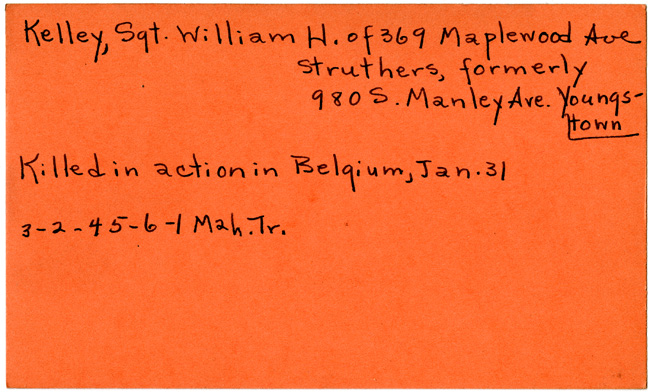 Kelley, Sgt. William H. of 369 Maplewood Ave
Struthers, formerly
980 S. Manley Ave. Youngs-
town
Killed in action in Belgium, Jan. 31
3-2-45-6-1 Mah. Tr.